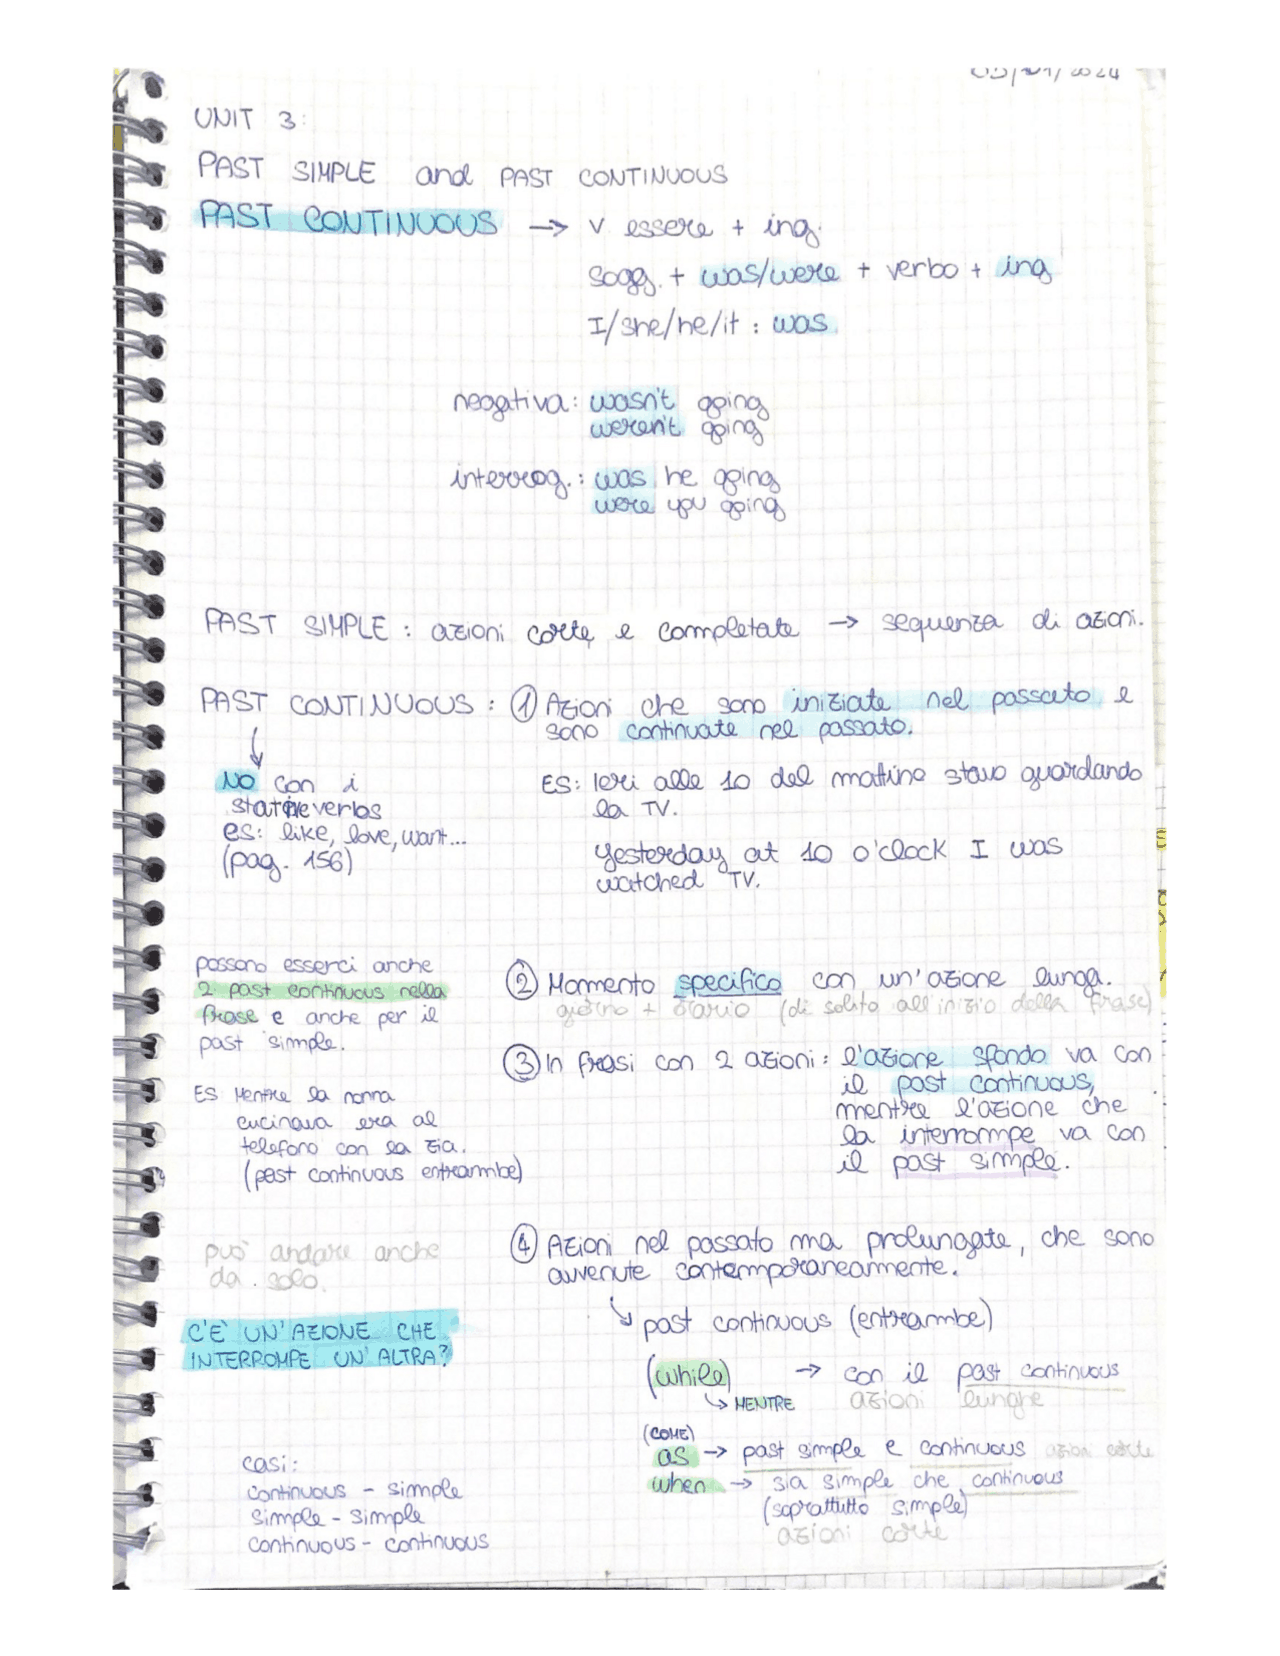 /2024
UNIT 3:
PAST SIMPLE and PAST CONTINUOUS
PAST CONTINUOUS → v essere + ing.
sogg. + was/were + verbo + ing
I/she/he/it : was
negativa: wasn't going
weren't going
interrog.: was he going
were you going
PAST SIMPLE : azioni corte, e completate → sequenza di azioni.
PAST CONTINUOUS : ① Azioni che sono iniziate nel passato e
sono continuate nel passato.
↓
NO con i
stative verbs
es: like, love, want...
(pag. 156)
ES: Ieri alle 10 del mattino stavo guardando
la TV.
Yesterday at 10 o'clock I was
watched TV.
possono esserci anche
2 past continuous nella
frase e anche per il
past simple.
ES Mentre la nonna
cucinava era al
telefono con la zia.
(past continuous entrambe)
② Momento specifico con un'azione lunga.
giorno + orario (di solito all'inizio della frase)
③ In frasi con 2 azioni: l'azione sfondo va con
il past continuous,
mentre l'azione che
la interrompe va con
il past simple.
può andare anche
da solo.
④ Azioni nel passato ma prolungate, che sono
avvenute contemporaneamente.
↳ past continuous (entrambe)
C'È UN'AZIONE CHE
INTERROMPE UN'ALTRA?
(while) → con il past continuous
↳ MENTRE azioni lunghe
(COME)
as → past simple e continuous azioni corte
when → sia simple che continuous
(soprattutto simple)
azioni corte
casi:
continuous - simple
simple - simple
continuous - continuous